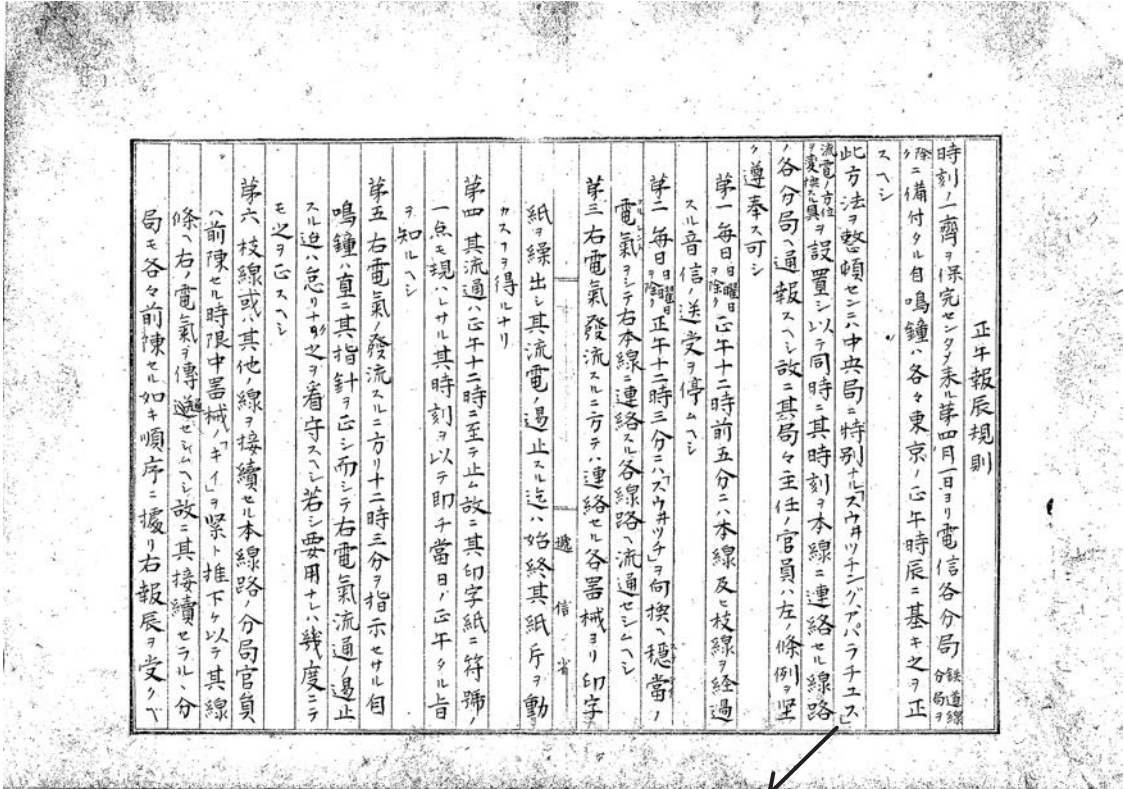 正午報辰規則
時刻ノ一齊ヲ保完センタメ来ル第四月一日ヨリ電信各分局鉄道線分局ヲ
除クニ備付タル自鳴鐘ハ各々東京ノ正午時辰ニ基キ之ヲ正
スヘシ
此方法ヲ整頓センニハ中央局ニ特別ナル「スウヰツチングアパラチユス」
流電ノ方位ヲ変換スル具ヲ設置シ以テ同時ニ其時刻ヲ本線ニ連絡セル線路
ノ各分局ヘ通報スヘシ故ニ其局々主任ノ官員ハ左ノ條例ヲ堅
ク遵奉ス可シ
第一 毎日日曜日ヲ除ク正午十二時前五分ニハ本線及ヒ枝線ヲ経過
スル音信ノ送受ヲ停ムヘシ
第二 毎日日曜日ヲ除ク正午十二時三分ニハ「スウヰツチ」ヲ向換ヘ穏當ノ
電氣ヲシテ右本線ニ連絡スル各線路ヘ流通セシムヘシ
第三 右電氣發流スルニ方テハ連絡セル各器械ヨリ印字
遞信省
紙ヲ繰出シ其流電ノ遏止スル迄ハ始終其紙片ヲ動
カスヲ得ルナリ
第四 其流通ハ正午十二時ニ至テ止ム故ニ其印字紙ニ符號ノ
一点モ現ハレサル其時刻ヲ以テ即チ當日ノ正午タル旨
ヲ知ルヘシ
第五 右電氣ノ發流スルニ方リ十二時三分ヲ指示セサル自
鳴鐘ハ直ニ其指針ヲ正シ而シテ右電氣流通ノ遏止
スル迄ハ怠リナク之ヲ看守スヘシ若シ要用ナレハ幾度ニテ
モ之ヲ正スヘシ
第六 枝線或ハ其他ノ線ヲ接續セル本線路ノ分局官員
ハ前陳セル時限中器械ノ「キイ」ヲ緊ト推下ケ以テ其線
條ヘ右ノ電氣ヲ傳遞セシムヘシ故ニ其接續セラルヽ分
局モ各々前陳セル如キ順序ニ據リ右報辰ヲ受クヘ